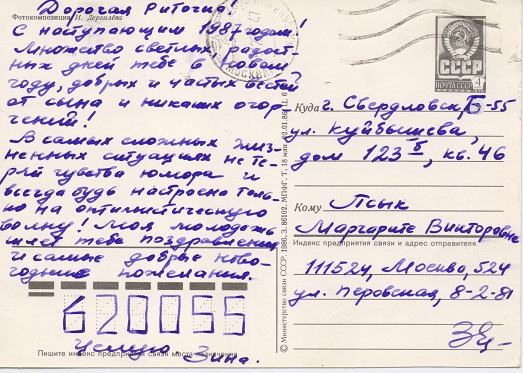 Дорогая Риточка!
Фотокомпозиция И. Дергилёва
С наступающим 1987 годом!
Множество светлых радост-
ных дней тебе в новом
году, добрых и частых вестей
от сына и никаких огор-
чений!
В самых сложных жиз-
ненных ситуациях не те-
ряй чувства юмора и
всегда будь настроена толь-
ко на оптимистическую
волну! Моя молодежь
шлет тебе поздравления
и самые добрые ново-
годние пожелания.
620055
Пишите индекс предприятия связи места назначения
Целую Зина.
© Министерство связи СССР. 1986. З. 86102. МПФГ. Т. 18 млн.
МОСКВА
СССР
ПОЧТА
4
Куда г. Свердловск, -55
ул. Куйбышева,
дом 123 б, кв. 46
Кому Псык
Маргарите Викторовне
Индекс предприятия связи и адрес отправителя
111524, Москва, 524
ул. Перовская, 8-2-81